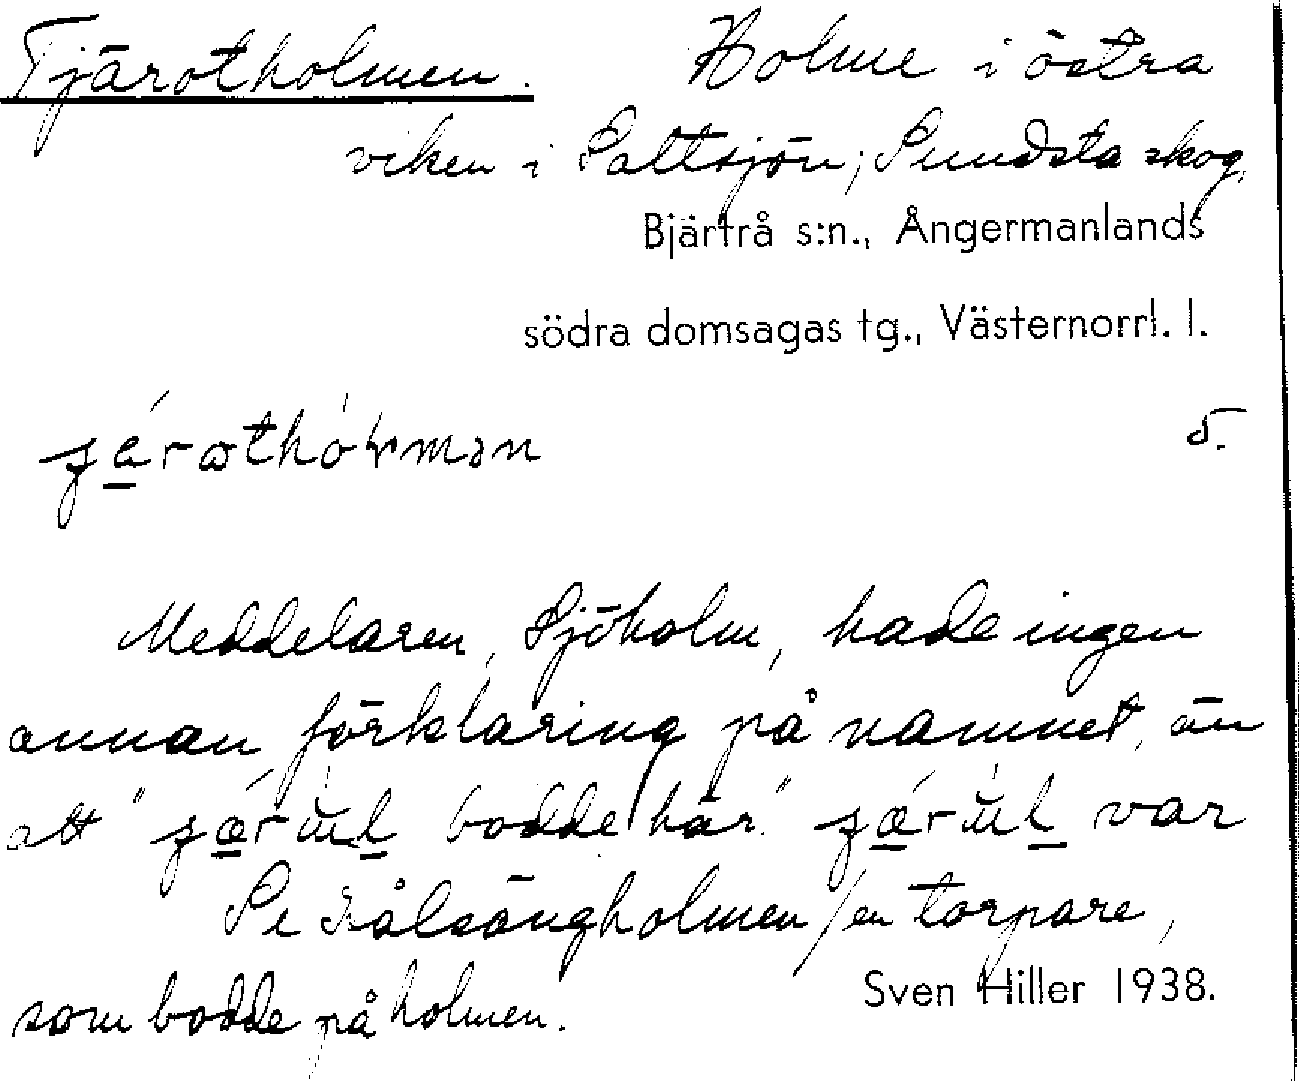 Tjärotholmen. Holme i östra
viken i Saltsjön; Sundsta skog,
Bjärtrå s:n., Ångermanlands
södra domsagas tg., Västernorrl. l.
5.
Meddelaren, Sjöholm, hade ingen
annan förklaring på namnet, än
att " bodde här." var
Se Kålsängholmen / en torpare,
som bodde på holmen.
Sven Hiller 1938.